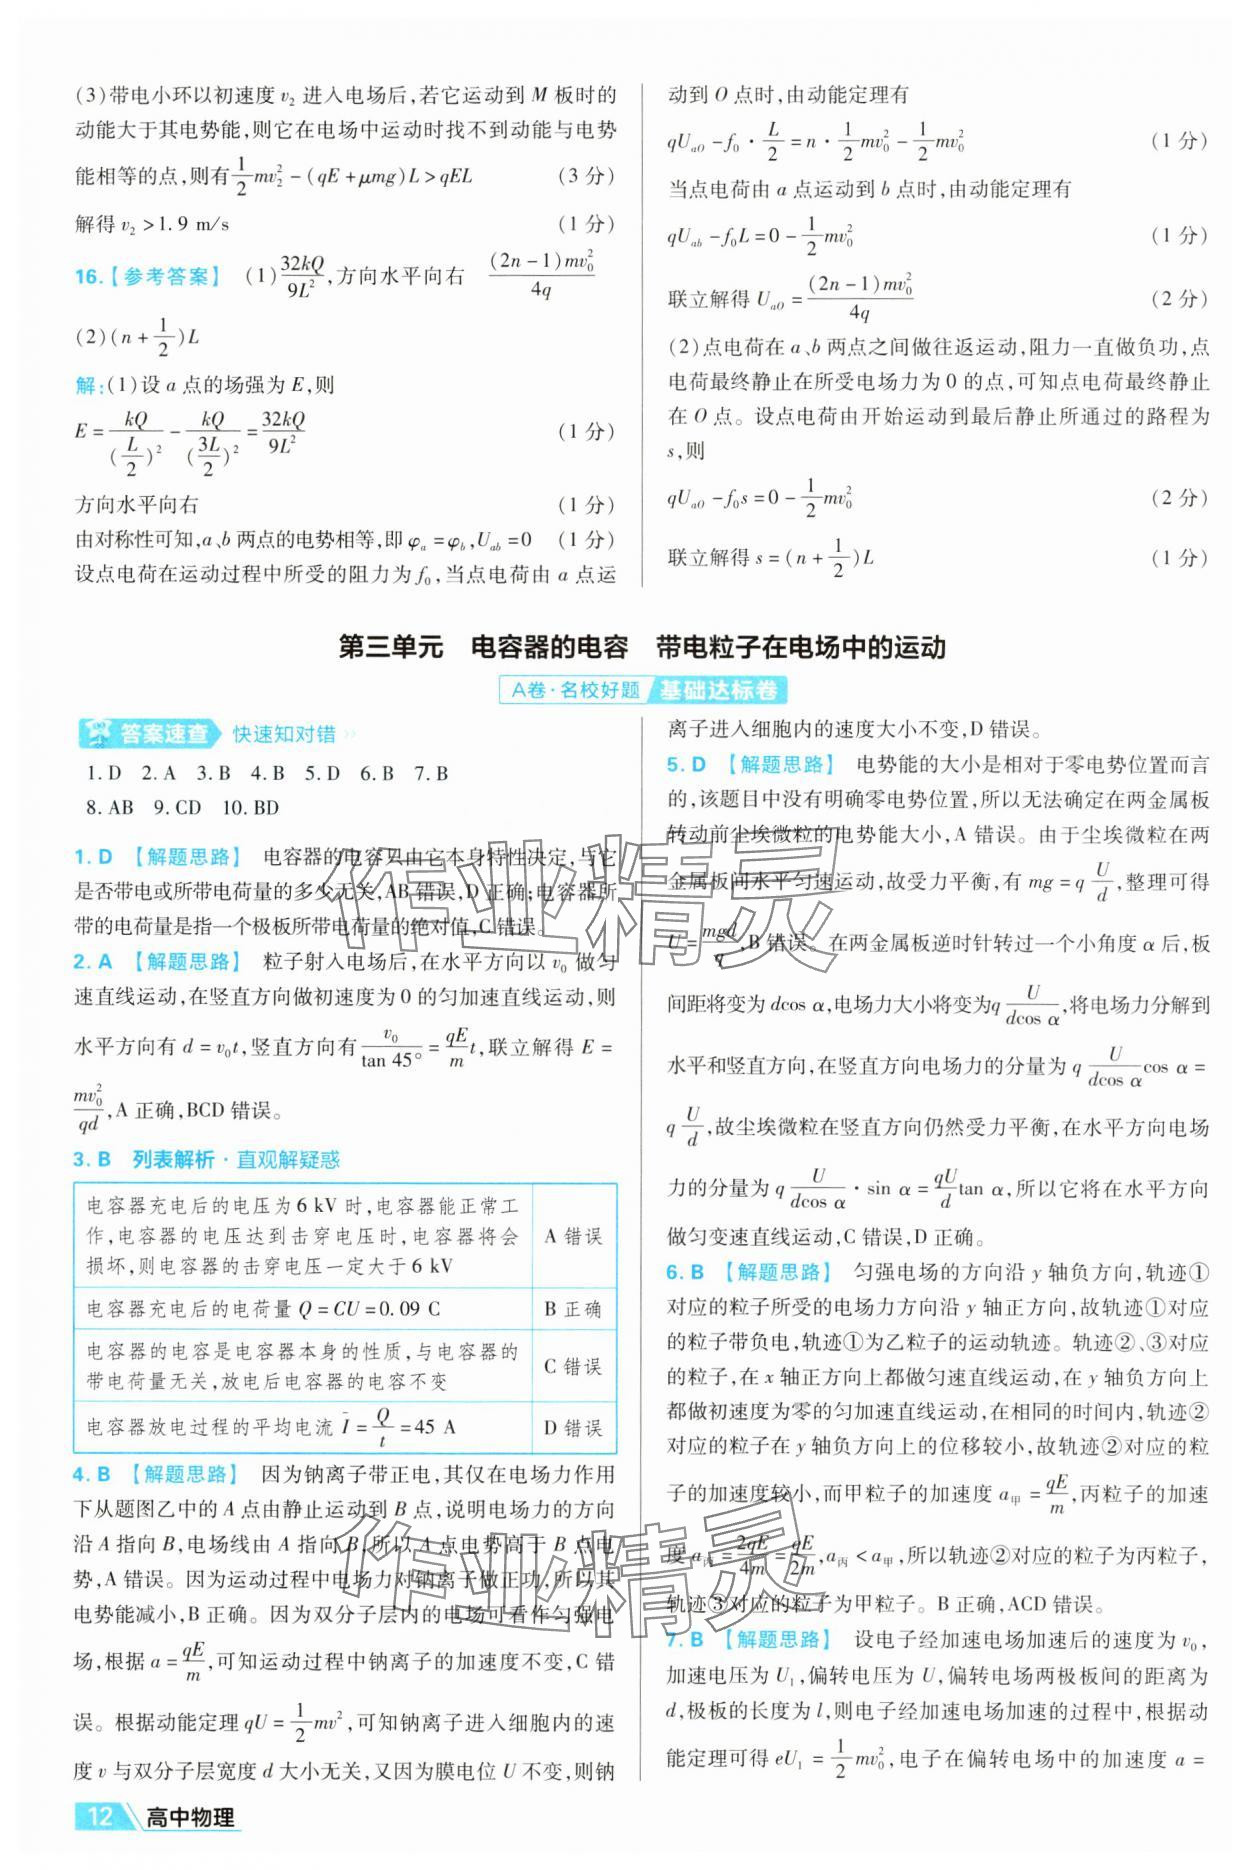 (3)带电小环以初速度 v₂ 进入电场后,若它运动到 M 板时的
动能大于其电势能,则它在电场中运动时找不到动能与电势
能相等的点,则有 1/2 mv₂² -(qE+μmg)L>qEL (3 分)
解得 v₂>1.9 m/s (1 分)
16.【参考答案】 (1) 32kQ/9L²,方向水平向右 (2n-1)mv₀²/4q
(2)(n+1/2)L
解:(1)设 a 点的场强为 E,则
E= kQ/(L/2)² - kQ/(3L/2)² = 32kQ/9L² (1 分)
方向水平向右 (1 分)
由对称性可知,a、b 两点的电势相等,即 φₐ=φ_b,U_ab=0 (1 分)
设点电荷在运动过程中所受的阻力为 f₀,当点电荷由 a 点运
动到 O 点时,由动能定理有
qU_aO-f₀·L/2=n·1/2 mv₀²-1/2 mv₀² (1 分)
当点电荷由 a 点运动到 b 点时,由动能定理有
qU_ab-f₀L=0-1/2 mv₀² (1 分)
联立解得 U_aO=(2n-1)mv₀²/4q (2 分)
(2)点电荷在 a、b 两点之间做往返运动,阻力一直做负功,点
电荷最终静止在所受电场力为 0 的点,可知点电荷最终静止
在 O 点。设点电荷由开始运动到最后静止所通过的路程为
s,则
qU_aO-f₀s=0-1/2 mv₀² (2 分)
联立解得 s=(n+1/2)L (1 分)
第三单元 电容器的电容 带电粒子在电场中的运动
A卷·名校好题 基础达标卷
答案速查 快速知对错
1. D 2. A 3. B 4. B 5. D 6. B 7. B
8. AB 9. CD 10. BD
1. D 【解题思路】 电容器的电容只由它本身特性决定,与它
是否带电或所带电荷量的多少无关,AB 错误,D 正确;电容器所
带的电荷量是指一个极板所带电荷量的绝对值,C 错误。
2. A 【解题思路】 粒子射入电场后,在水平方向以 v₀ 做匀
速直线运动,在竖直方向做初速度为 0 的匀加速直线运动,则
水平方向有 d=v₀t,竖直方向有 v₀/tan 45°=qE/m t,联立解得 E=
mv₀²/qd,A 正确,BCD 错误。
3. B 列表解析·直观解疑惑
电容器充电后的电压为 6 kV 时,电容器能正常工
作,电容器的电压达到击穿电压时,电容器将会 A 错误
损坏,则电容器的击穿电压一定大于 6 kV
电容器充电后的电荷量 Q=CU=0.09 C B 正确
电容器的电容是电容器本身的性质,与电容器的
带电荷量无关,放电后电容器的电容不变 C 错误
电容器放电过程的平均电流 Ī=Q/t=45 A D 错误
4. B 【解题思路】 因为钠离子带正电,其仅在电场力作用
下从题图乙中的 A 点由静止运动到 B 点,说明电场力的方向
沿 A 指向 B,电场线由 A 指向 B,所以 A 点电势高于 B 点电
势,A 错误。因为运动过程中电场力对钠离子做正功,所以其
电势能减小,B 正确。因为双分子层内的电场可看作匀强电
场,根据 a=qE/m,可知运动过程中钠离子的加速度不变,C 错
误。根据动能定理 qU=1/2 mv²,可知钠离子进入细胞内的速
度 v 与双分子层宽度 d 大小无关,又因为膜电位 U 不变,则钠
离子进入细胞内的速度大小不变,D 错误。
5. D 【解题思路】 电势能的大小是相对于零电势位置而言
的,该题目中没有明确零电势位置,所以无法确定在两金属板
转动前尘埃微粒的电势能大小,A 错误。由于尘埃微粒在两
金属板间水平匀速运动,故受力平衡,有 mg=q U/d,整理可得
U=mgd/q,B 错误。在两金属板逆时针转过一个小角度 α 后,板
间距将变为 dcos α,电场力大小将变为q U/dcos α,将电场力分解到
水平和竖直方向,在竖直方向电场力的分量为 q U/dcos α cos α=
q U/d,故尘埃微粒在竖直方向仍然受力平衡,在水平方向电场
力的分量为 q U/dcos α·sin α=qU/d tan α,所以它将在水平方向
做匀变速直线运动,C 错误,D 正确。
6. B 【解题思路】 匀强电场的方向沿 y 轴负方向,轨迹①
对应的粒子所受的电场力方向沿 y 轴正方向,故轨迹①对应
的粒子带负电,轨迹①为乙粒子的运动轨迹。轨迹②、③对应
的粒子,在 x 轴正方向上都做匀速直线运动,在 y 轴负方向上
都做初速度为零的匀加速直线运动,在相同的时间内,轨迹②
对应的粒子在 y 轴负方向上的位移较小,故轨迹②对应的粒
子的加速度较小,而甲粒子的加速度 a甲=qE/m,丙粒子的加速
度 a丙=2qE/4m=qE/2m,a丙<a甲,所以轨迹②对应的粒子为丙粒子,
轨迹③对应的粒子为甲粒子。B 正确,ACD 错误。
7. B 【解题思路】 设电子经加速电场加速后的速度为 v₀,
加速电压为 U₁,偏转电压为 U,偏转电场两极板间的距离为
d,极板的长度为 l,则电子经加速电场加速的过程中,根据动
能定理可得 eU₁=1/2 mv₀²,电子在偏转电场中的加速度 a=
作业精灵
作业精灵
12 高中物理